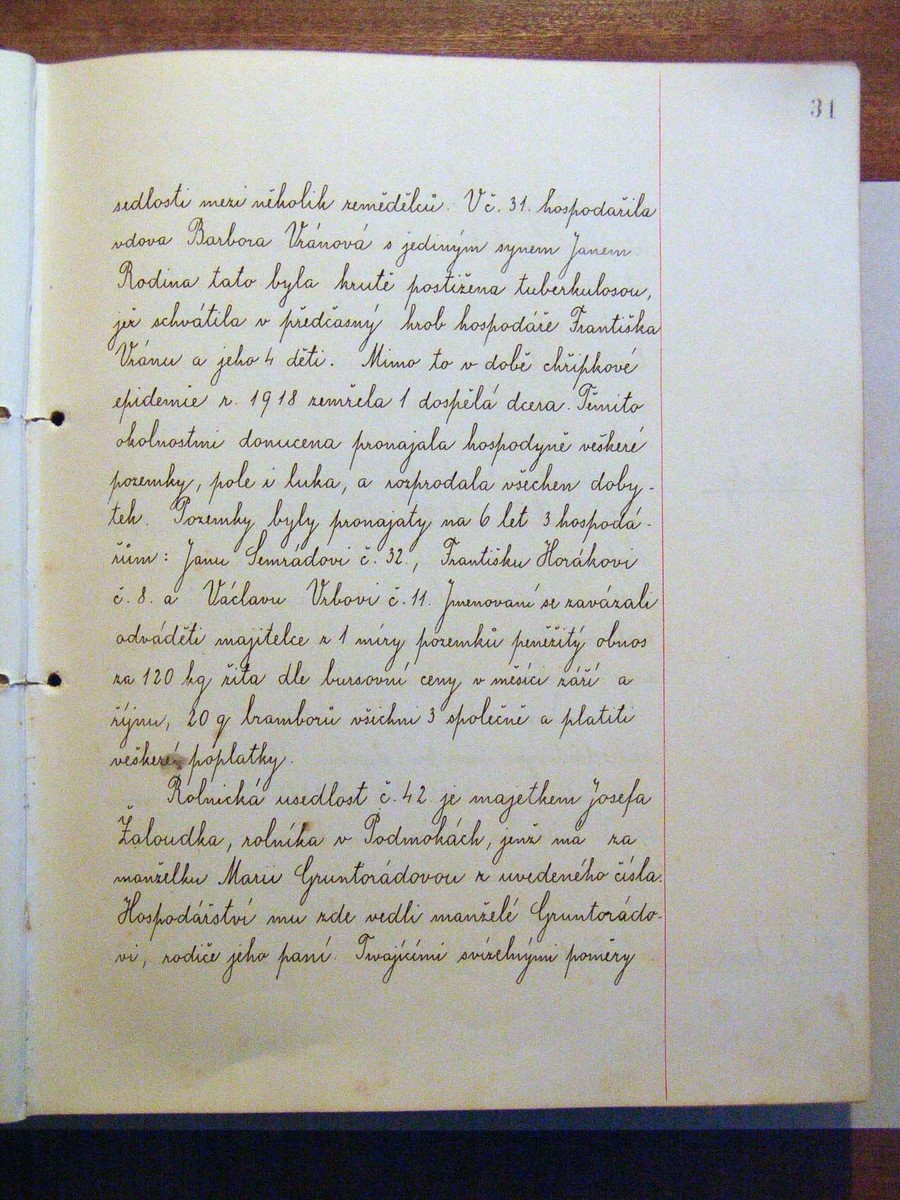 31
sedlosti mezi několik zemědělců. V č. 31. hospodařila
vdova Barbora Vránová s jediným synem Janem.
Rodina tato byla krutě postižena tuberkulosou,
jež schvátila v předčasný hrob hospodáře Františka
Vránu a jeho 4 děti. Mimo to v době chřipkové
epidemie r. 1918 zemřela 1 dospělá dcera. Těmito
okolnostmi donucena pronajala hospodyně veškeré
pozemky, pole i luka, a rozprodala všechen doby-
tek. Pozemky byly pronajaty na 6 let 3 hospodá-
řům: Janu Semrádovi č. 32., Františku Horákovi
č. 8. a Václavu Vrbovi č. 11. Jmenovaní se zavázali
odváděti majitelce z 1 míry pozemků peněžitý obnos
za 120 kg žita dle bursovní ceny v měsíci září a
říjnu, 20 q bramborů všichni 3 společně a platiti
veškeré poplatky.
Rolnická usedlost č. 42. je majetkem Josefa
Žaloudka, rolníka v Podmokách, jenž ma za
manželku Marii Gruntorádovou z uvedeného čísla.
Hospodářství mu zde vedli manželé Gruntorádo-
vi, rodiče jeho paní. Trvajícími svízelnými poměry